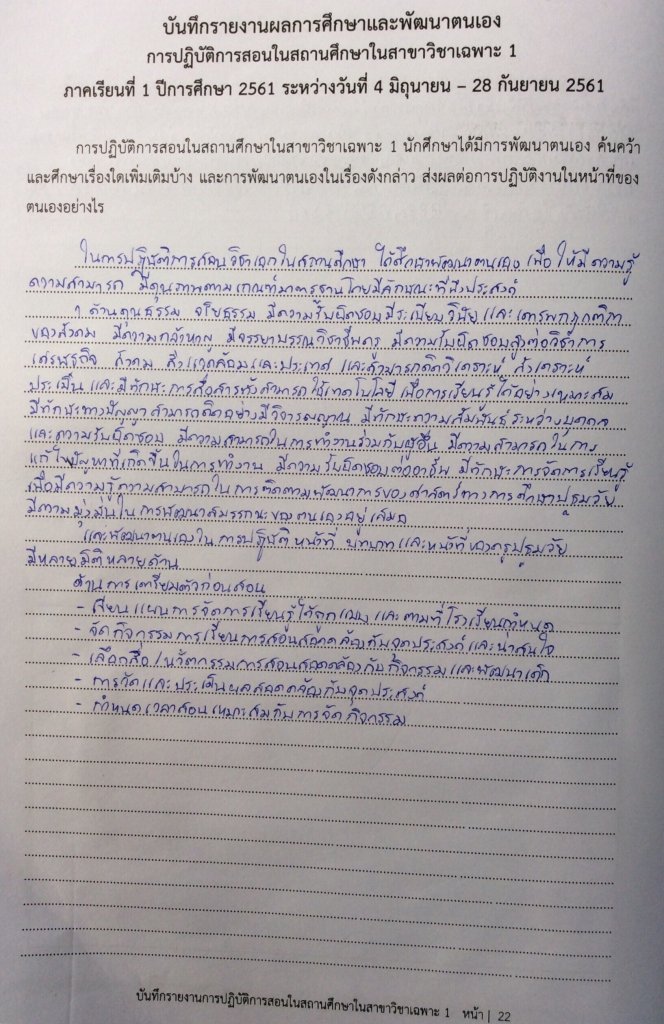 บันทึกรายงานผลการศึกษาและพัฒนาตนเอง
การปฏิบัติการสอนในสถานศึกษาในสาขาวิชาเฉพาะ 1
ภาคเรียนที่ 1 ปีการศึกษา 2561 ระหว่างวันที่ 4 มิถุนายน – 28 กันยายน 2561
การปฏิบัติการสอนในสถานศึกษาในสาขาวิชาเฉพาะ 1 นักศึกษาได้มีการพัฒนาตนเอง ค้นคว้า
และศึกษาเรื่องใดเพิ่มเติมบ้าง และการพัฒนาตนเองในเรื่องดังกล่าว ส่งผลต่อการปฏิบัติงานในหน้าที่ของ
ตนเองอย่างไร
ในการปฏิบัติการสอนวิชาเอกในสถานศึกษา ได้ศึกษาพัฒนาตนเอง เพื่อให้มีความรู้
ความสามารถ มีคุณภาพตามเกณฑ์มาตรฐานโดยมีลักษณะที่พึงประสงค์
1 ด้านคุณธรรม จริยธรรม มีความรับผิดชอบมีระเบียบวินัย และเคารพกฎกติกา
ของสังคม มีความกล้าหาญ มีจรรยาบรรณวิชาชีพครู มีความรับผิดชอบสูงต่อวิชาการ
เศรษฐกิจ สังคม สิ่งแวดล้อมและประเทศ และสามารถคิดวิเคราะห์ สังเคราะห์
ประเมิน และมีทักษะการสื่อสารทั้งสามารถใช้เทคโนโลยี เพื่อการเรียนรู้ได้อย่างเหมาะสม
มีทักษะทางปัญญา สามารถคิดอย่างมีวิจารณญาณ มีทักษะความสัมพันธ์ระหว่างบุคคล
และความรับผิดชอบ มีความสามารถในการทำงานร่วมกับผู้อื่น มีความสามารถในการ
แก้ไขปัญหาที่เกิดขึ้นในการทำงาน มีความรับผิดชอบต่ออาชีพ มีทักษะการจัดการเรียนรู้
เพื่อมีความรู้ความสามารถในการติดตามพัฒนาการของศาสตร์ทางการศึกษาปฐมวัย
มีความมุ่งมั่นในการพัฒนาสมรรถนะของตนเองอยู่เสมอ
และพัฒนาตนเองในการปฏิบัติหน้าที่ บทบาทและหน้าที่ของครูปฐมวัย
มีหลายมิติหลายด้าน
ด้านการเตรียมตัวก่อนสอน
- เขียนแผนการจัดการเรียนรู้ได้ถูกแบบ และตามที่โรงเรียนกำหนด
- จัดกิจกรรมการเรียนการสอนสอดคล้องกับจุดประสงค์และน่าสนใจ
- เลือกสื่อ/นวัตกรรมการสอนสอดคล้องกับกิจกรรมและพัฒนาเด็ก
- การวัดและประเมินผลสอดคล้องกับจุดประสงค์
- กำหนดเวลาสอนเหมาะสมกับการจัดกิจกรรม
บันทึกรายงานการปฏิบัติการสอนในสถานศึกษาในสาขาวิชาเฉพาะ 1 หน้า | 22